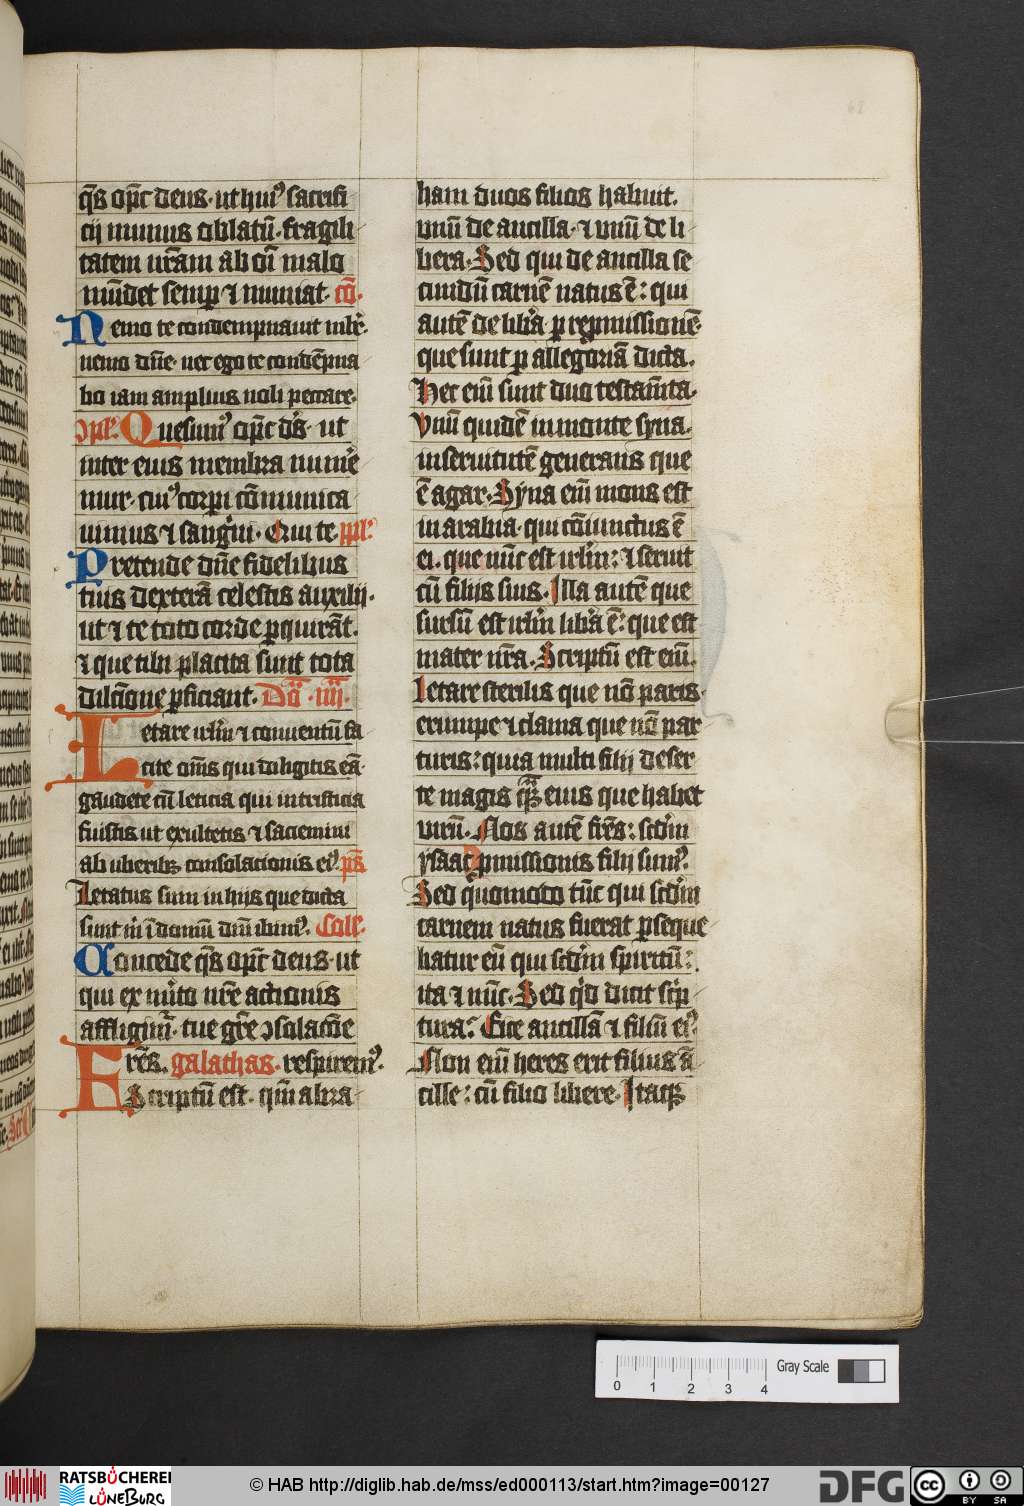 62
q̄s op̄c deus · ut huiꝰ sacrifi
cii munus oblatū · fragili
tatem ur̄am ab oī malo
mūdet semꝑ ⁊ muniat · cō·
Nemo te condempnauit mlr̄·
nemo dn̄e · nec ego te condēpna
bo iam amplius noli peccare·
ɔpl̄· Quesumꝰ op̄c ds̄ · ut
inter eius membra num̄e
mur · cuiꝰ corpi cōmunica
mus ⁊ sangͥni · Qui te ppl̄:
Pretende dn̄e fidelibus
tuis dexterā celestis auxilij ·
ut ⁊ te toto corde ꝑquirāt·
⁊ que tibi placita sunt tota
dilcōne ꝑficiant · Dō̄ · iiij·
Letare irlm̄ ⁊ conuentū fa
cite om̄s qui diligitis eā·
gaudete cū leticia qui in tristicia
fuistis ut exultetis ⁊ saciemini
ab uberibꝫ consolacionis eiꝰ· ps̄
Letatus sum in hijs que dicta
sunt m̄ ī domū dn̄i ibimꝰ· Coll̄·
Concede q̄s op̄c deus · ut
qui ex m̄ito nr̄e actionis
affligimr̄ · tue gr̄e ɔsolacōe
respiremꝰ·
Fr̄es · galathas·
Scriptū est · qm̄ abra
ham duos filios habuit·
vnū de ancilla · ⁊ vnū de li
bera · Sed qui de ancilla se
cundū carnē natus ē : qui
autē de libͣa · ꝑ repmissionē·
que sunt ꝑ allegoriā dicta·
Hec em̄ sunt duo testam̄ta·
Vnū quidē in monte syna·
in seruitutē generans que
ē agar · Syna em̄ mons est
in arabia · qui cōiunctus ē
ei · que nūc est irlm̄ : ⁊ seruit
cū filijs suis · Illa autē que
sursū est irlm̄ libͣa ē : que est
mater nr̄a · Scriptū est em̄·
Letare sterilis que nō paris·
erumpe ⁊ clama que nō par
turis : quia multi filij deser
te magis qꝫ̄ eius que habet
virū · Nos autē fr̄es : scdm̄
ysaac ꝓmissionis filij sumꝰ·
Sed quͦmodo tūc qui scdm̄
carnem natus fuerat ꝑseque
batur eū qui scdm̄ spiritū :
ita ⁊ nūc · Sed qͥd dicit scͥp
tura : Eice ancillā ⁊ filiū eiꝰ·
Non em̄ heres erit filius ā
cille : cū filio libere · Itaqꝫ
Gray Scale
0 1 2 3 4
RATSBÜCHEREI
LÜNEBURG
© HAB http://diglib.hab.de/mss/ed000113/start.htm?image=00127
DFG
cc BY SA